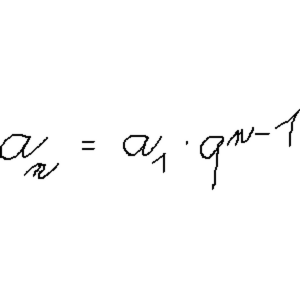 aₙ = a₁ · qⁿ⁻¹